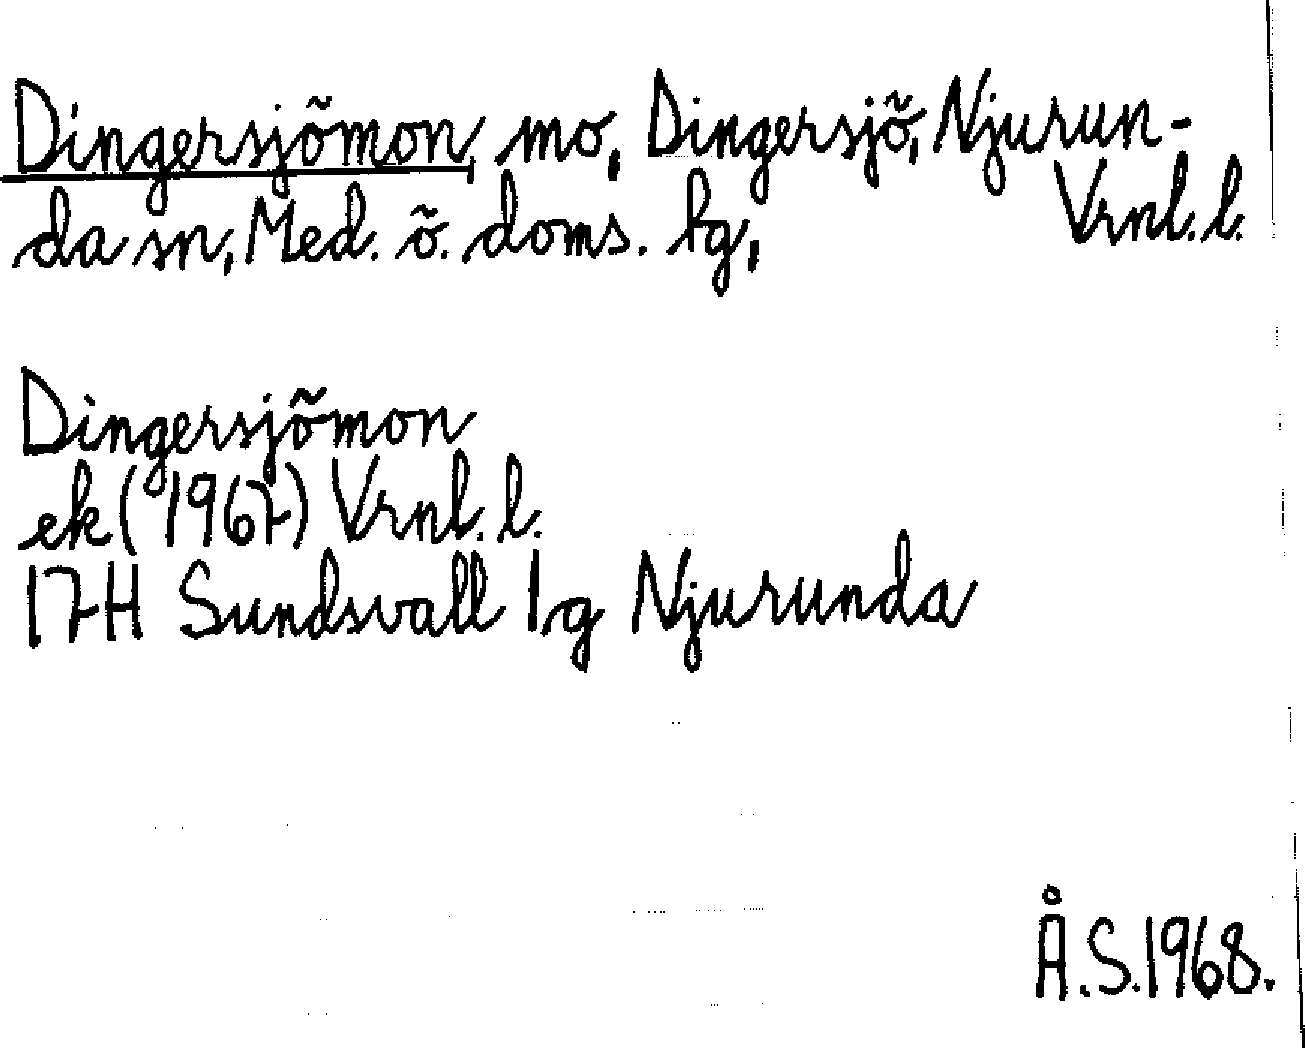 Dingersjömon, mo, Dingersjö, Njurun-
da sn, Med. ö. doms. lg, Vrnl. l.
Dingersjömon
ek (1967) Vrnl. l.
17H Sundsvall 1,g Njurunda
Å.S.1968.